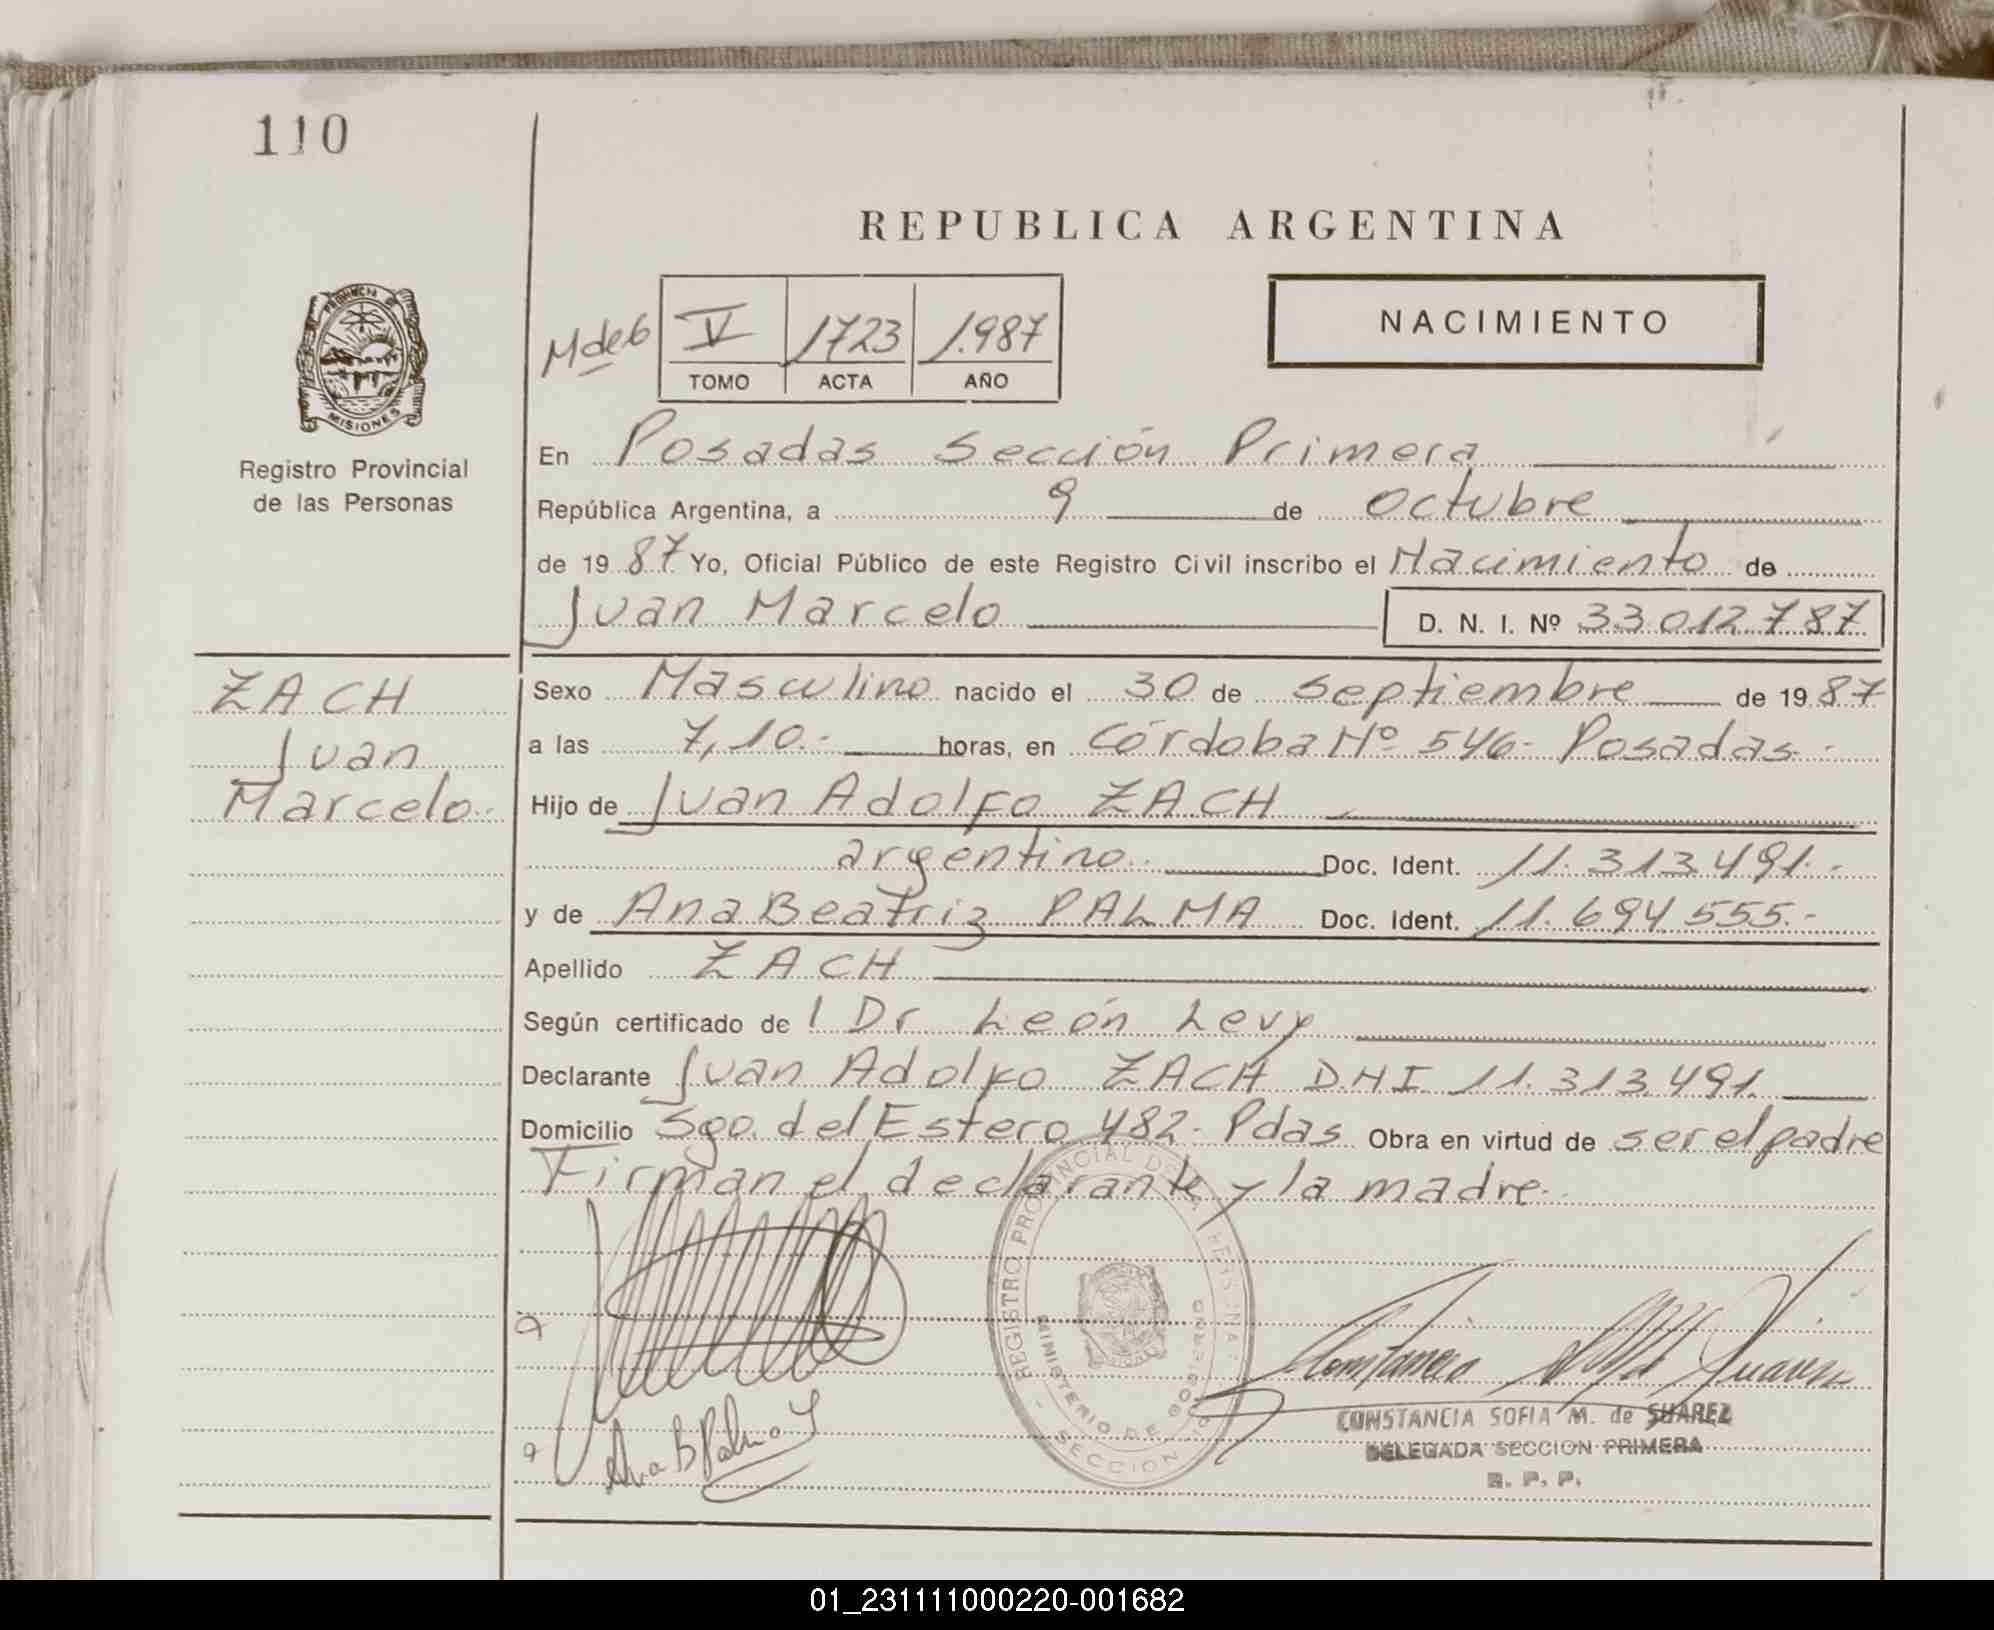 110
REPUBLICA ARGENTINA
PROVINCIA DE
MISIONES
Registro Provincial
de las Personas
V 1723 1.987
TOMO ACTA AÑO
NACIMIENTO
En Posadas Sección Primera
República Argentina, a 9 de octubre
de 19 87 Yo, Oficial Público de este Registro Civil inscribo el Nacimiento de
Juan Marcelo D. N. I. Nº 33.012.787
ZACH
Juan
Marcelo.-
Sexo Masculino nacido el 30 de septiembre de 19 87
a las 7,10.- horas, en Córdoba Nº 546- Posadas.-
Hijo de Juan Adolfo ZACH
argentino.- Doc. Ident. 11.313.491.-
y de Ana Beatriz PALMA Doc. Ident. 11.694.555.-
Apellido ZACH
Según certificado de l Dr León Levy
Declarante Juan Adolfo ZACH D.N.I 11.313.491.
Domicilio Sgo. del Estero 482- Pdas Obra en virtud de ser el padre
Firman el declarante y la madre.-
REGISTRO PROVINCIAL DE LAS PERSONAS
MINISTERIO DE GOBIERNO
- SECCION 1ª -
Ana B Palma
Constancia Suarez
CONSTANCIA SOFIA M. de SUAREZ
DELEGADA SECCION PRIMERA
R. P. P.
01_231111000220-001682